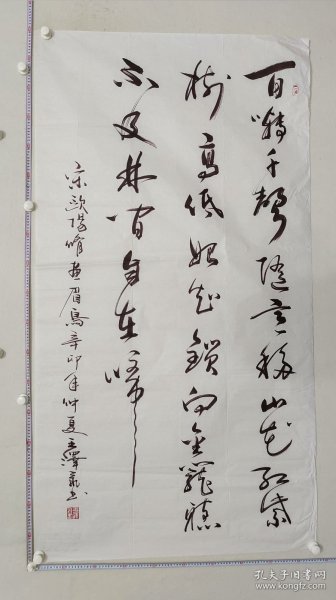 百啭千声随意移山花红紫
树高低始知锁向金笼听
不及林间自在啼
宋欧阳修画眉鸟辛卯年仲夏王泽
孔夫子旧书网